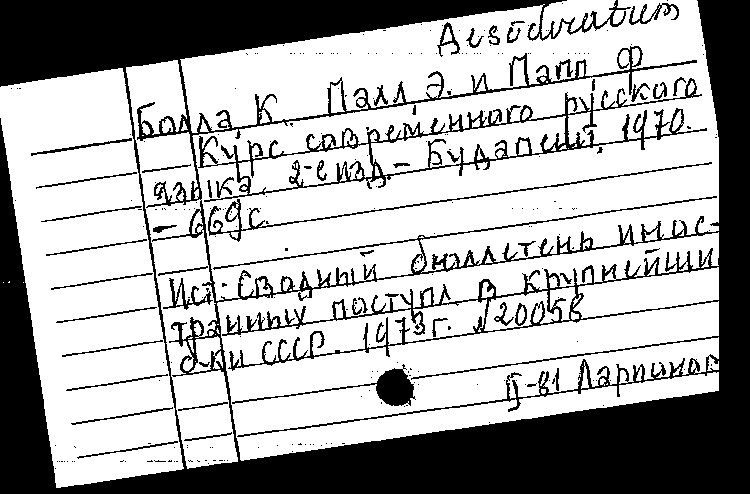 Desideratum
Болла К., Палл Э. и Папп Ф
Курс современного русского
языка. 2-е изд. - Будапешт, 1970.
- 669 с.
Ист: Сводный бюллетень инос-
транных поступл. в крупнейши
б-ки СССР. 1973г. №20058
II-81 Ларина